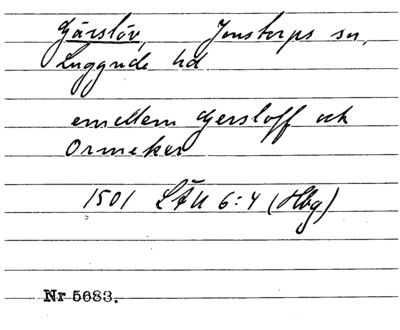 Gärslöv, Jonstorps sn,
Luggude hd.
emellem Gersloff och
Ormeker
1501 LÄU 6:4 (Hbg)
Nr 5683.